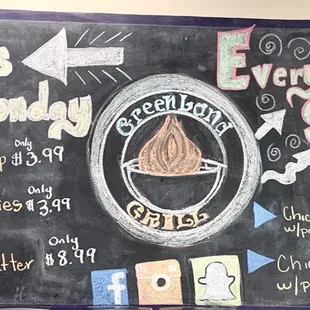 s
onday
Only
p $3.99
Only
ies $3.99
Only
tter $8.99
GreenLand
GRILL
f
Every
Chic
w/po
Chic
w/p